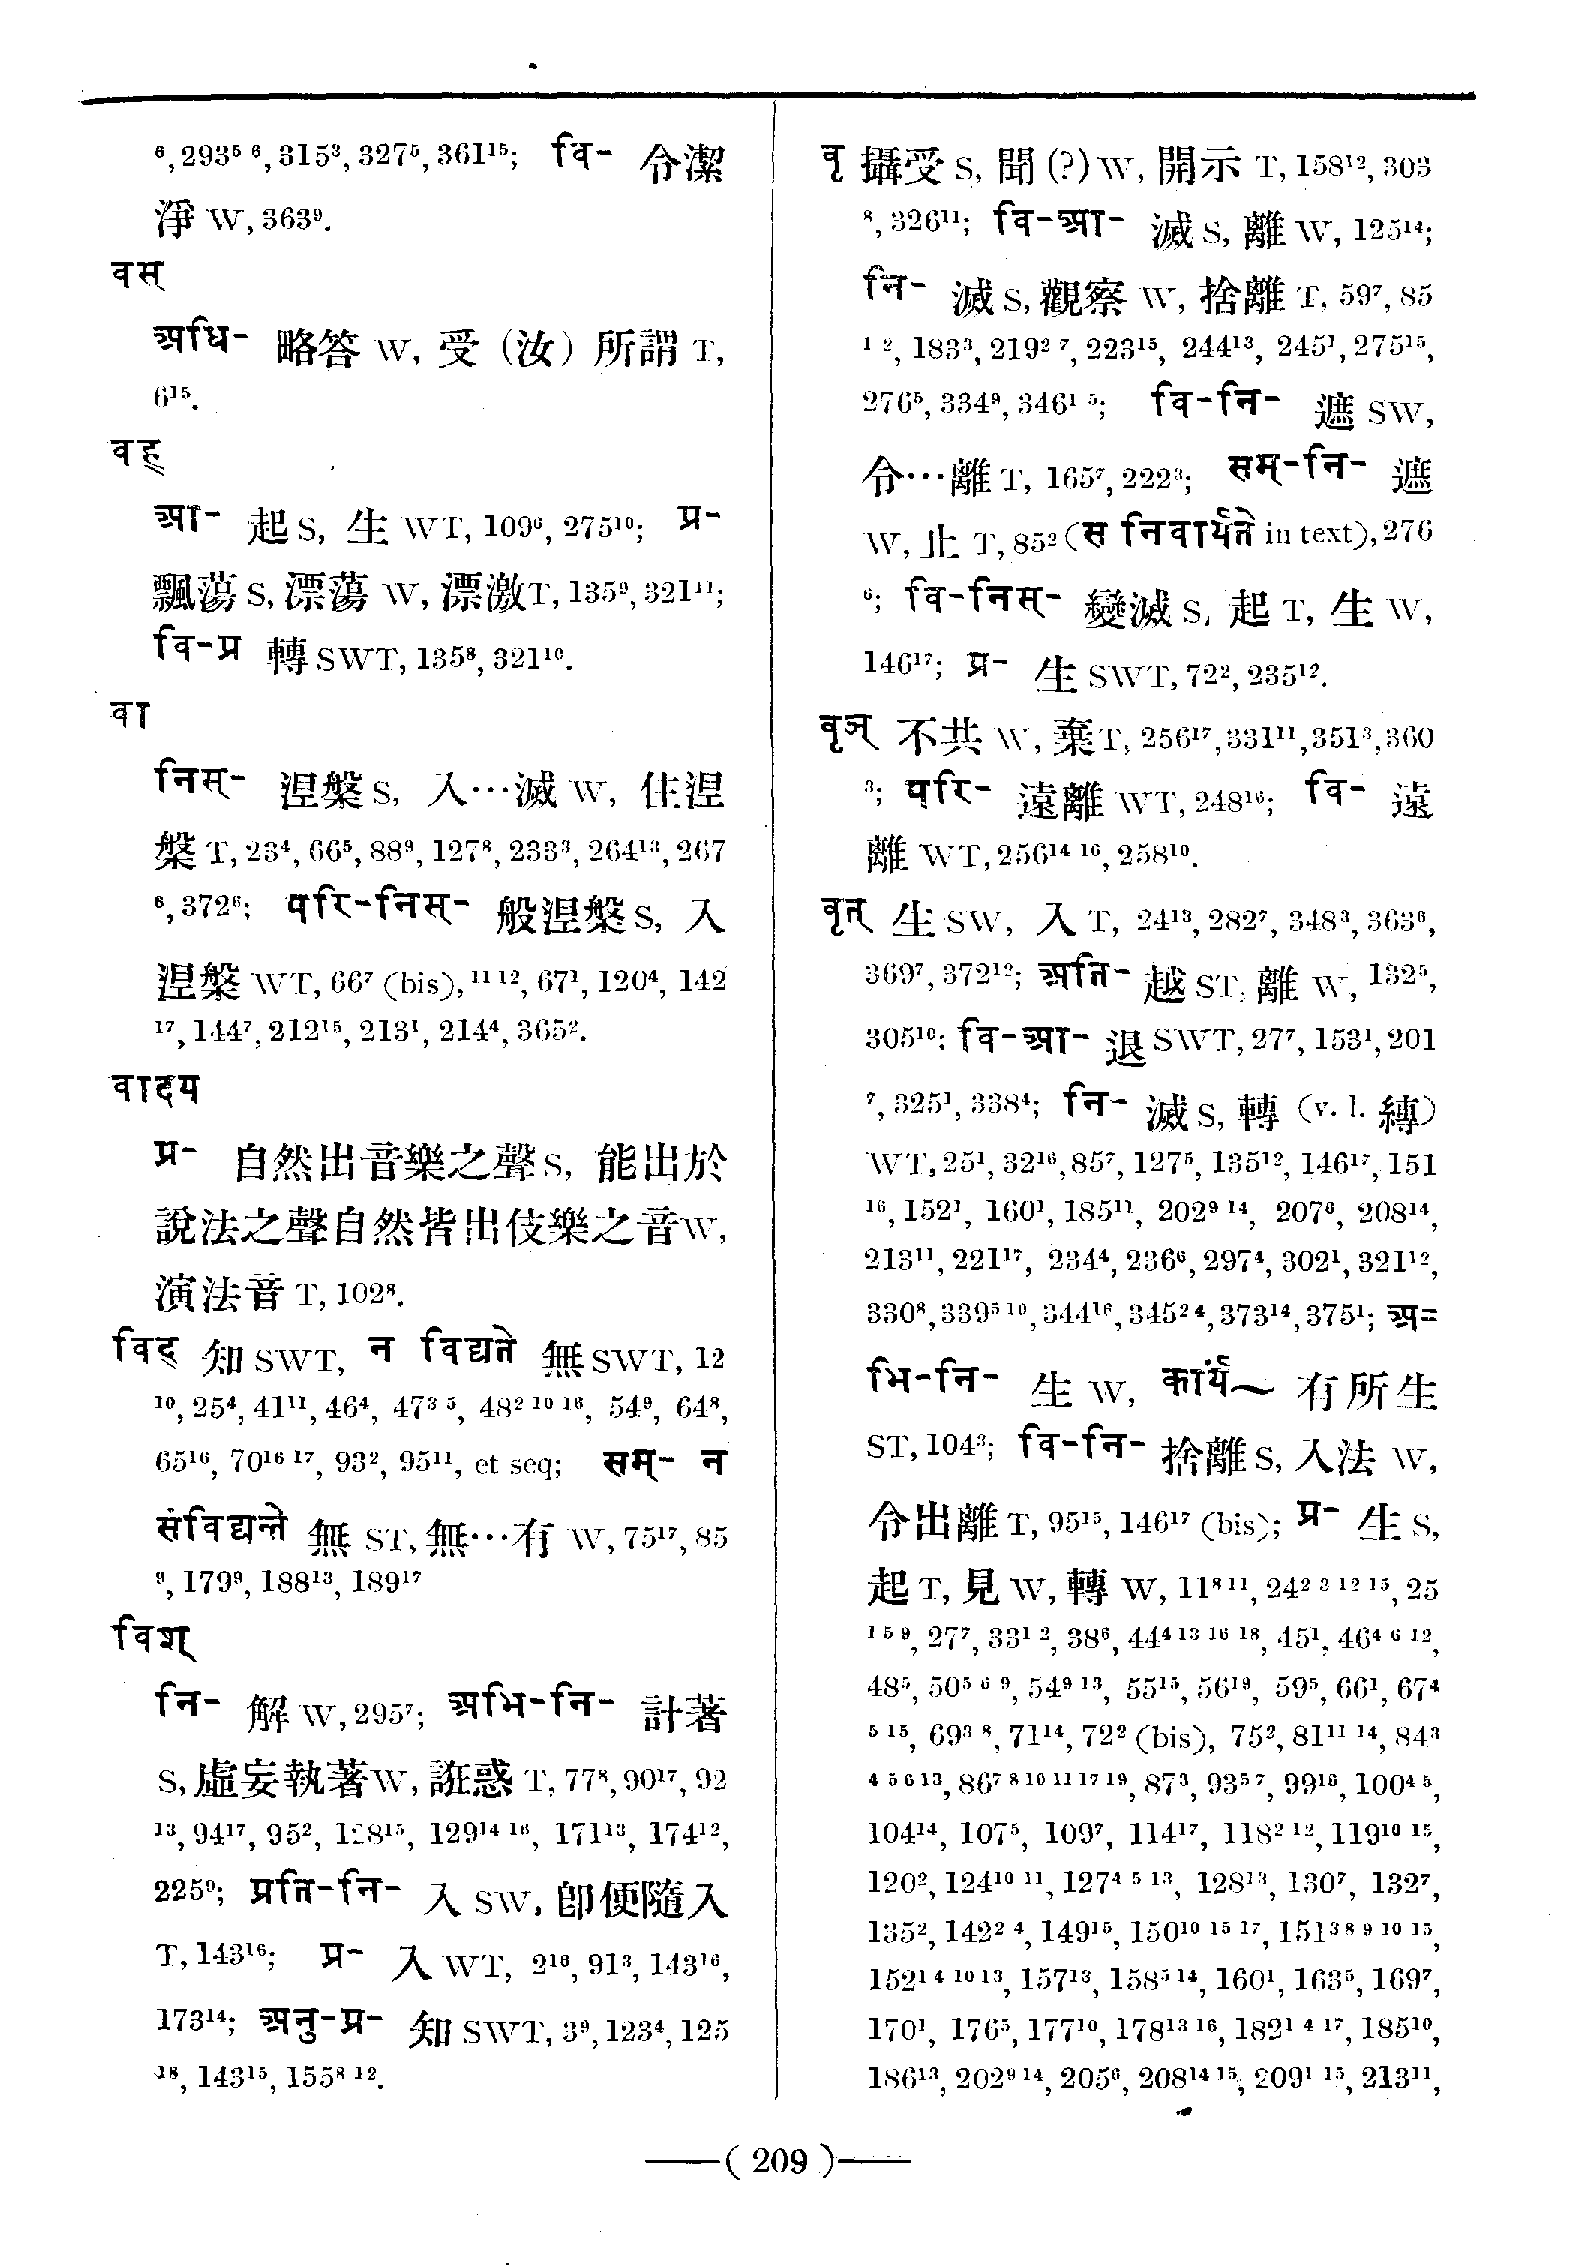 ⁶, 293⁵ ⁶, 315³, 327⁵, 361¹⁵; वि- 令潔
淨 W, 363⁹.
वस्
अधि- 略答 W, 受 (汝) 所謂 T,
6¹⁵.
वह्
आ- 起 S, 生 WT, 109⁶, 275¹⁰; प्र-
飄蕩 S, 漂蕩 W, 漂激 T, 135⁹, 321¹¹;
वि-प्र 轉 SWT, 135⁸, 321¹⁰.
वा
निस्- 涅槃 S, 入…滅 W, 住涅
槃 T, 23⁴, 66⁵, 88⁹, 127⁸, 233³, 264¹³, 267
⁶, 372⁶; परि-निस्- 般涅槃 S, 入
涅槃 WT, 66⁷ (bis), ¹¹ ¹², 67¹, 120⁴, 142
¹⁷, 144⁷, 212¹⁵, 213¹, 214⁴, 365².
वादय
प्र- 自然出音樂之聲 S, 能出於
說法之聲自然皆出伎樂之音 W,
演法音 T, 102⁸.
विद् 知 SWT, न विद्यते 無 SWT, 12
¹⁰, 25⁴, 41¹¹, 46⁴, 47³ ⁵, 48² ¹⁰ ¹⁶, 54⁹, 64⁸,
65¹⁶, 70¹⁶ ¹⁷, 93², 95¹¹, et seq; सम्- न
संविद्यन्ते 無 ST, 無…有 W, 75¹⁷, 85
⁹, 179⁹, 188¹³, 189¹⁷
विश्
नि- 解 W, 295⁷; अभि-नि- 計著
S, 虛妄執著 W, 誑惑 T, 77⁸, 90¹⁷, 92
¹³, 94¹⁷, 95², 128¹⁵, 129¹⁴ ¹⁶, 171¹³, 174¹²,
225⁹; प्रति-नि- 入 SW, 卽便隨入
T, 143¹⁶; प्र- 入 WT, 2¹⁶, 91³, 143¹⁶,
173¹⁴; अनु-प्र- 知 SWT, 3⁹, 123⁴, 125
¹⁸, 143¹⁵, 155⁸ ¹².
वृ 攝受 S, 聞 (?) W, 開示 T, 158¹², 303
⁸, 326¹¹; वि-आ- 滅 S, 離 W, 125¹⁴;
नि- 滅 S, 觀察 W, 捨離 T, 59⁷, 85
¹ ², 183³, 219² ⁷, 223¹⁵, 244¹³, 245¹, 275¹⁵,
276⁵, 334⁹, 346¹ ⁵; वि-नि- 遮 SW,
令…離 T, 165⁷, 222³; सम्-नि- 遮
W, 止 T, 85² (स निवार्यते in text), 276
⁶; वि-निस्- 變滅 S, 起 T, 生 W,
146¹⁷; प्र- 生 SWT, 72², 235¹².
वृञ् 不共 W, 棄 T, 256¹⁷, 331¹¹, 351³, 360
³; परि- 遠離 WT, 248¹⁶; वि- 遠
離 WT, 256¹⁴ ¹⁶, 258¹⁰.
वृत् 生 SW, 入 T, 24¹³, 282⁷, 348³, 363⁶,
369⁷, 372¹²; अति- 越 ST, 離 W, 132⁵,
305¹⁰; वि-आ- 退 SWT, 27⁷, 153¹, 201
⁷, 325¹, 338⁴; नि- 滅 S, 轉 (v. l. 縛)
WT, 25¹, 32¹⁶, 85⁷, 127⁵, 135¹², 146¹⁷, 151
¹⁶, 152¹, 160¹, 185¹¹, 202⁹ ¹⁴, 207⁶, 208¹⁴,
213¹¹, 221¹⁷, 234⁴, 236⁶, 297⁴, 302¹, 321¹²,
330⁸, 339⁵ ¹⁰, 344¹⁶, 345² ⁴, 373¹⁴, 375¹; अ=
भि-नि- 生 W, कार्य~ 有所生
ST, 104³; वि-नि- 捨離 S, 入法 W,
令出離 T, 95¹⁵, 146¹⁷ (bis); प्र- 生 S,
起 T, 見 W, 轉 W, 11⁸ ¹¹, 24² ³ ¹² ¹⁵, 25
¹ ⁵ ⁹, 27⁷, 33¹ ², 38⁶, 44⁴ ¹³ ¹⁶ ¹⁸, 45¹, 46⁴ ⁶ ¹²,
48⁵, 50⁵ ⁶ ⁹, 54⁹ ¹³, 55¹⁵, 56¹⁹, 59⁵, 66¹, 67⁴
⁵ ¹⁵, 69³ ⁸, 71¹⁴, 72² (bis), 75², 81¹¹ ¹⁴, 84³
⁴ ⁵ ⁶ ¹³, 86⁷ ⁸ ¹⁰ ¹¹ ¹⁷ ¹⁹, 87³, 93⁵ ⁷, 99¹⁶, 100⁴ ⁵,
104¹⁴, 107⁵, 109⁷, 114¹⁷, 118² ¹², 119¹⁰ ¹⁵,
120², 124¹⁰ ¹¹, 127⁴ ⁵ ¹³, 128¹³, 130⁷, 132⁷,
135², 142² ⁴, 149¹⁵, 150¹⁰ ¹⁵ ¹⁷, 151³ ⁸ ⁹ ¹⁰ ¹⁵,
152¹ ⁴ ¹⁰ ¹³, 157¹³, 158⁵ ¹⁴, 160¹, 163⁵, 169⁷,
170¹, 176⁵, 177¹⁰, 178¹³ ¹⁶, 182¹ ⁴ ¹⁷, 185¹⁰,
186¹³, 202⁹ ¹⁴, 205⁶, 208¹⁴ ¹⁵, 209¹ ¹⁵, 213¹¹,
—( 209 )—